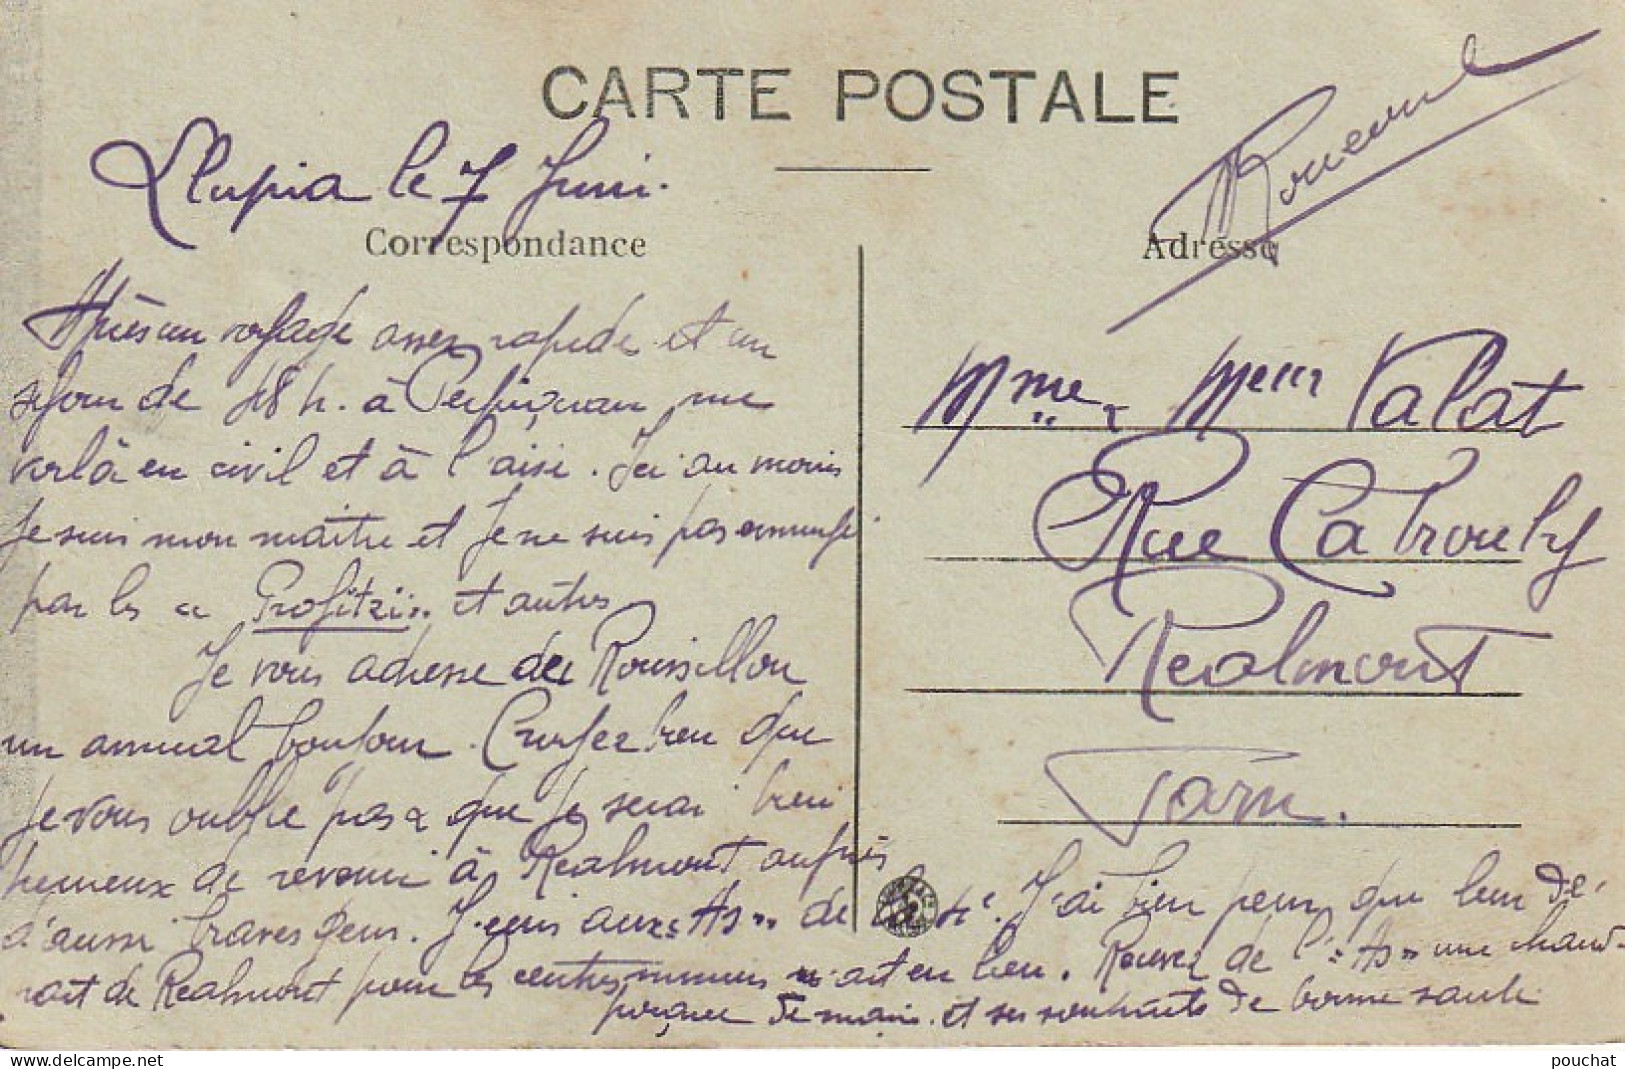 CARTE POSTALE
Llupia le 7 Juin.
Correspondance
Après un voyage assez rapide et un
séjour de 48 h. à Perpignan, me
voilà en civil et à l'aise. Ici au moins
je suis mon maître et je ne suis pas ennuyé
par les « Profitzi » et autres
Je vous adresse du Roussillon
un amical bonjour. Croyez bien que
je vous oublie pas & que je serai bien
heureux de revenir à Realmont auprès
d'aussi braves gens. aux « As » de la 4e. J'ai bien peur que leur dé-
part de Realmont pour les centres miniers n'ait eu lieu. Recevez de l' « As » une chaude
poignée de mains et ses souhaits de bonne santé
Adresse
Mme & Meur Valat
Rue Cabrouly
Realmont
Tarn.
www.delcampe.net
pouchat